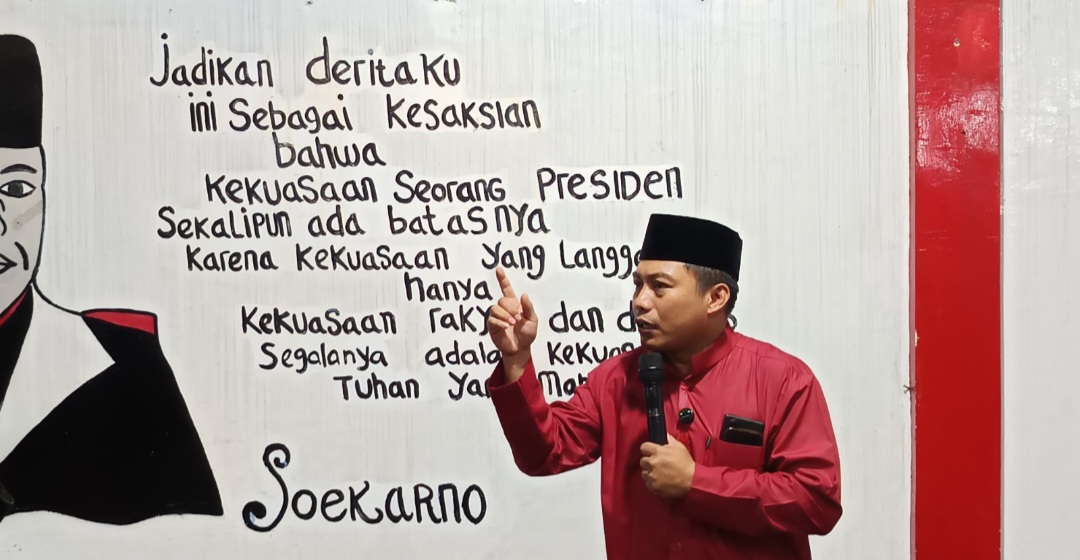 Jadikan deritaku
ini Sebagai Kesaksian
bahwa
Kekuasaan Seorang Presiden
Sekalipun ada batasnya
Karena Kekuasaan yang
hanya
Kekuasaan dan
Segalanya
Tuhan
Soekarno